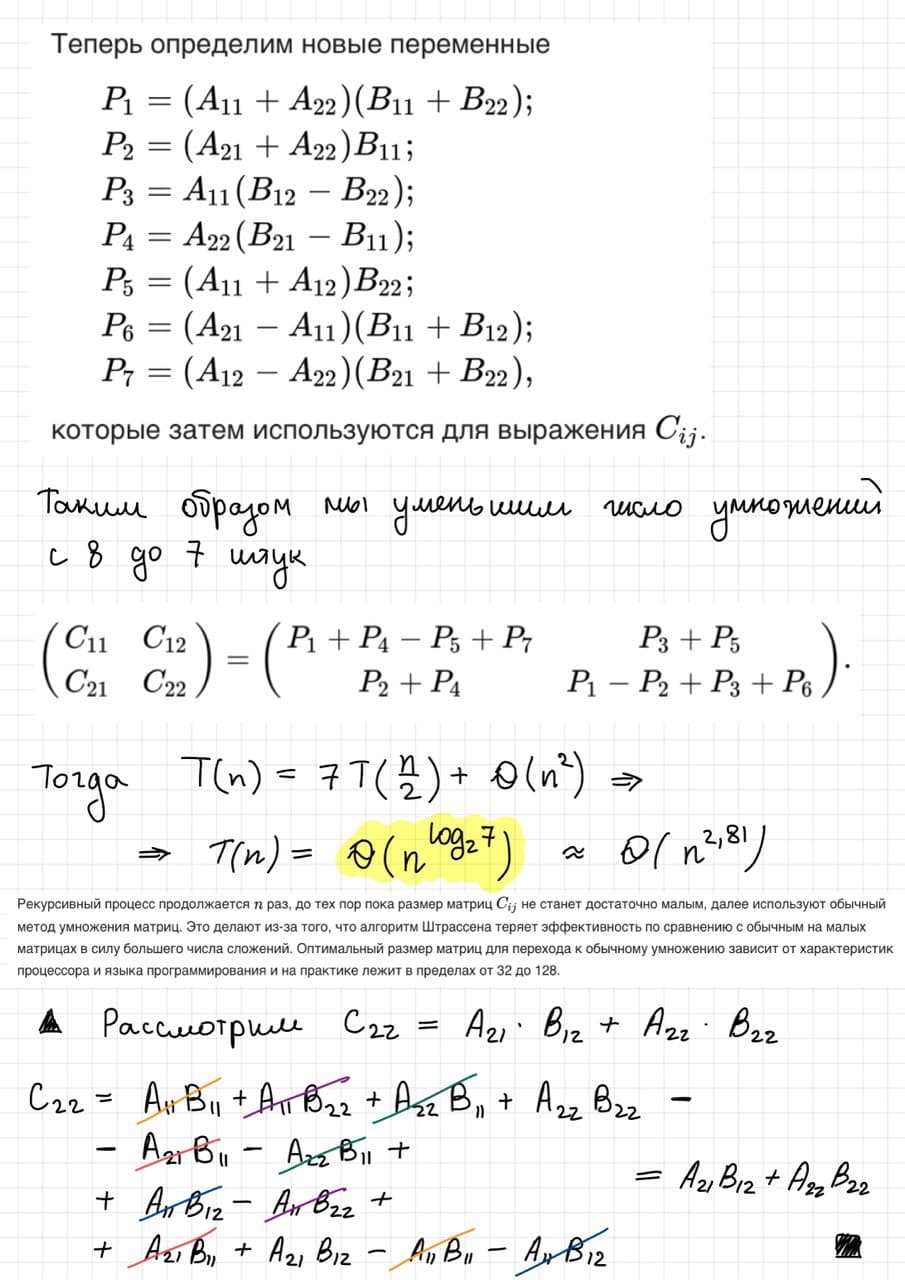 Теперь определим новые переменные
P₁ = (A₁₁ + A₂₂)(B₁₁ + B₂₂);
P₂ = (A₂₁ + A₂₂)B₁₁;
P₃ = A₁₁(B₁₂ − B₂₂);
P₄ = A₂₂(B₂₁ − B₁₁);
P₅ = (A₁₁ + A₁₂)B₂₂;
P₆ = (A₂₁ − A₁₁)(B₁₁ + B₁₂);
P₇ = (A₁₂ − A₂₂)(B₂₁ + B₂₂),
которые затем используются для выражения Cᵢⱼ.
Таким образом мы уменьшим число умножений
с 8 до 7 штук
(C₁₁ C₁₂) = (P₁ + P₄ − P₅ + P₇ P₃ + P₅)
(C₂₁ C₂₂) (P₂ + P₄ P₁ − P₂ + P₃ + P₆).
Тогда T(n) = 7T(n/2) + Θ(n²) ⇒
⇒ T(n) = Θ(n^log₂7) ≈ Θ(n^2,81)
Рекурсивный процесс продолжается n раз, до тех пор пока размер матриц Cᵢⱼ не станет достаточно малым, далее используют обычный
метод умножения матриц. Это делают из-за того, что алгоритм Штрассена теряет эффективность по сравнению с обычным на малых
матрицах в силу большего числа сложений. Оптимальный размер матриц для перехода к обычному умножению зависит от характеристик
процессора и языка программирования и на практике лежит в пределах от 32 до 128.
▲ Рассмотрим C₂₂ = A₂₁ · B₁₂ + A₂₂ · B₂₂
C₂₂ = A₁₁B₁₁ + A₁₁B₂₂ + A₂₂B₁₁ + A₂₂B₂₂ −
− A₂₁B₁₁ − A₂₂B₁₁ +
+ A₁₁B₁₂ − A₁₁B₂₂ + = A₂₁B₁₂ + A₂₂B₂₂
+ A₂₁B₁₁ + A₂₁B₁₂ − A₁₁B₁₁ − A₁₁B₁₂ ■